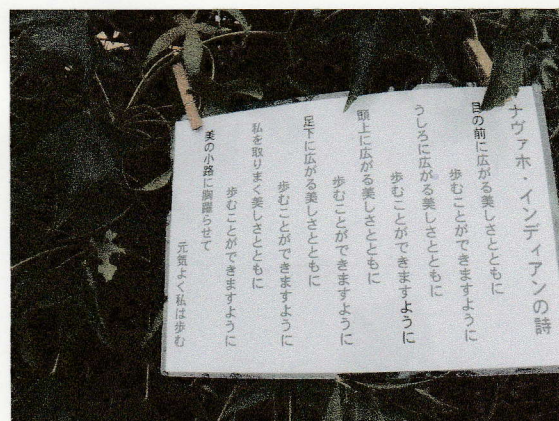 ナヴァホ・インディアンの詩
目の前に広がる美しさとともに
歩むことができますように
うしろに広がる美しさとともに
歩むことができますように
頭上に広がる美しさとともに
歩むことができますように
足下に広がる美しさとともに
歩むことができますように
私を取りまく美しさとともに
歩むことができますように
美の小路に胸躍らせて
元気よく私は歩む